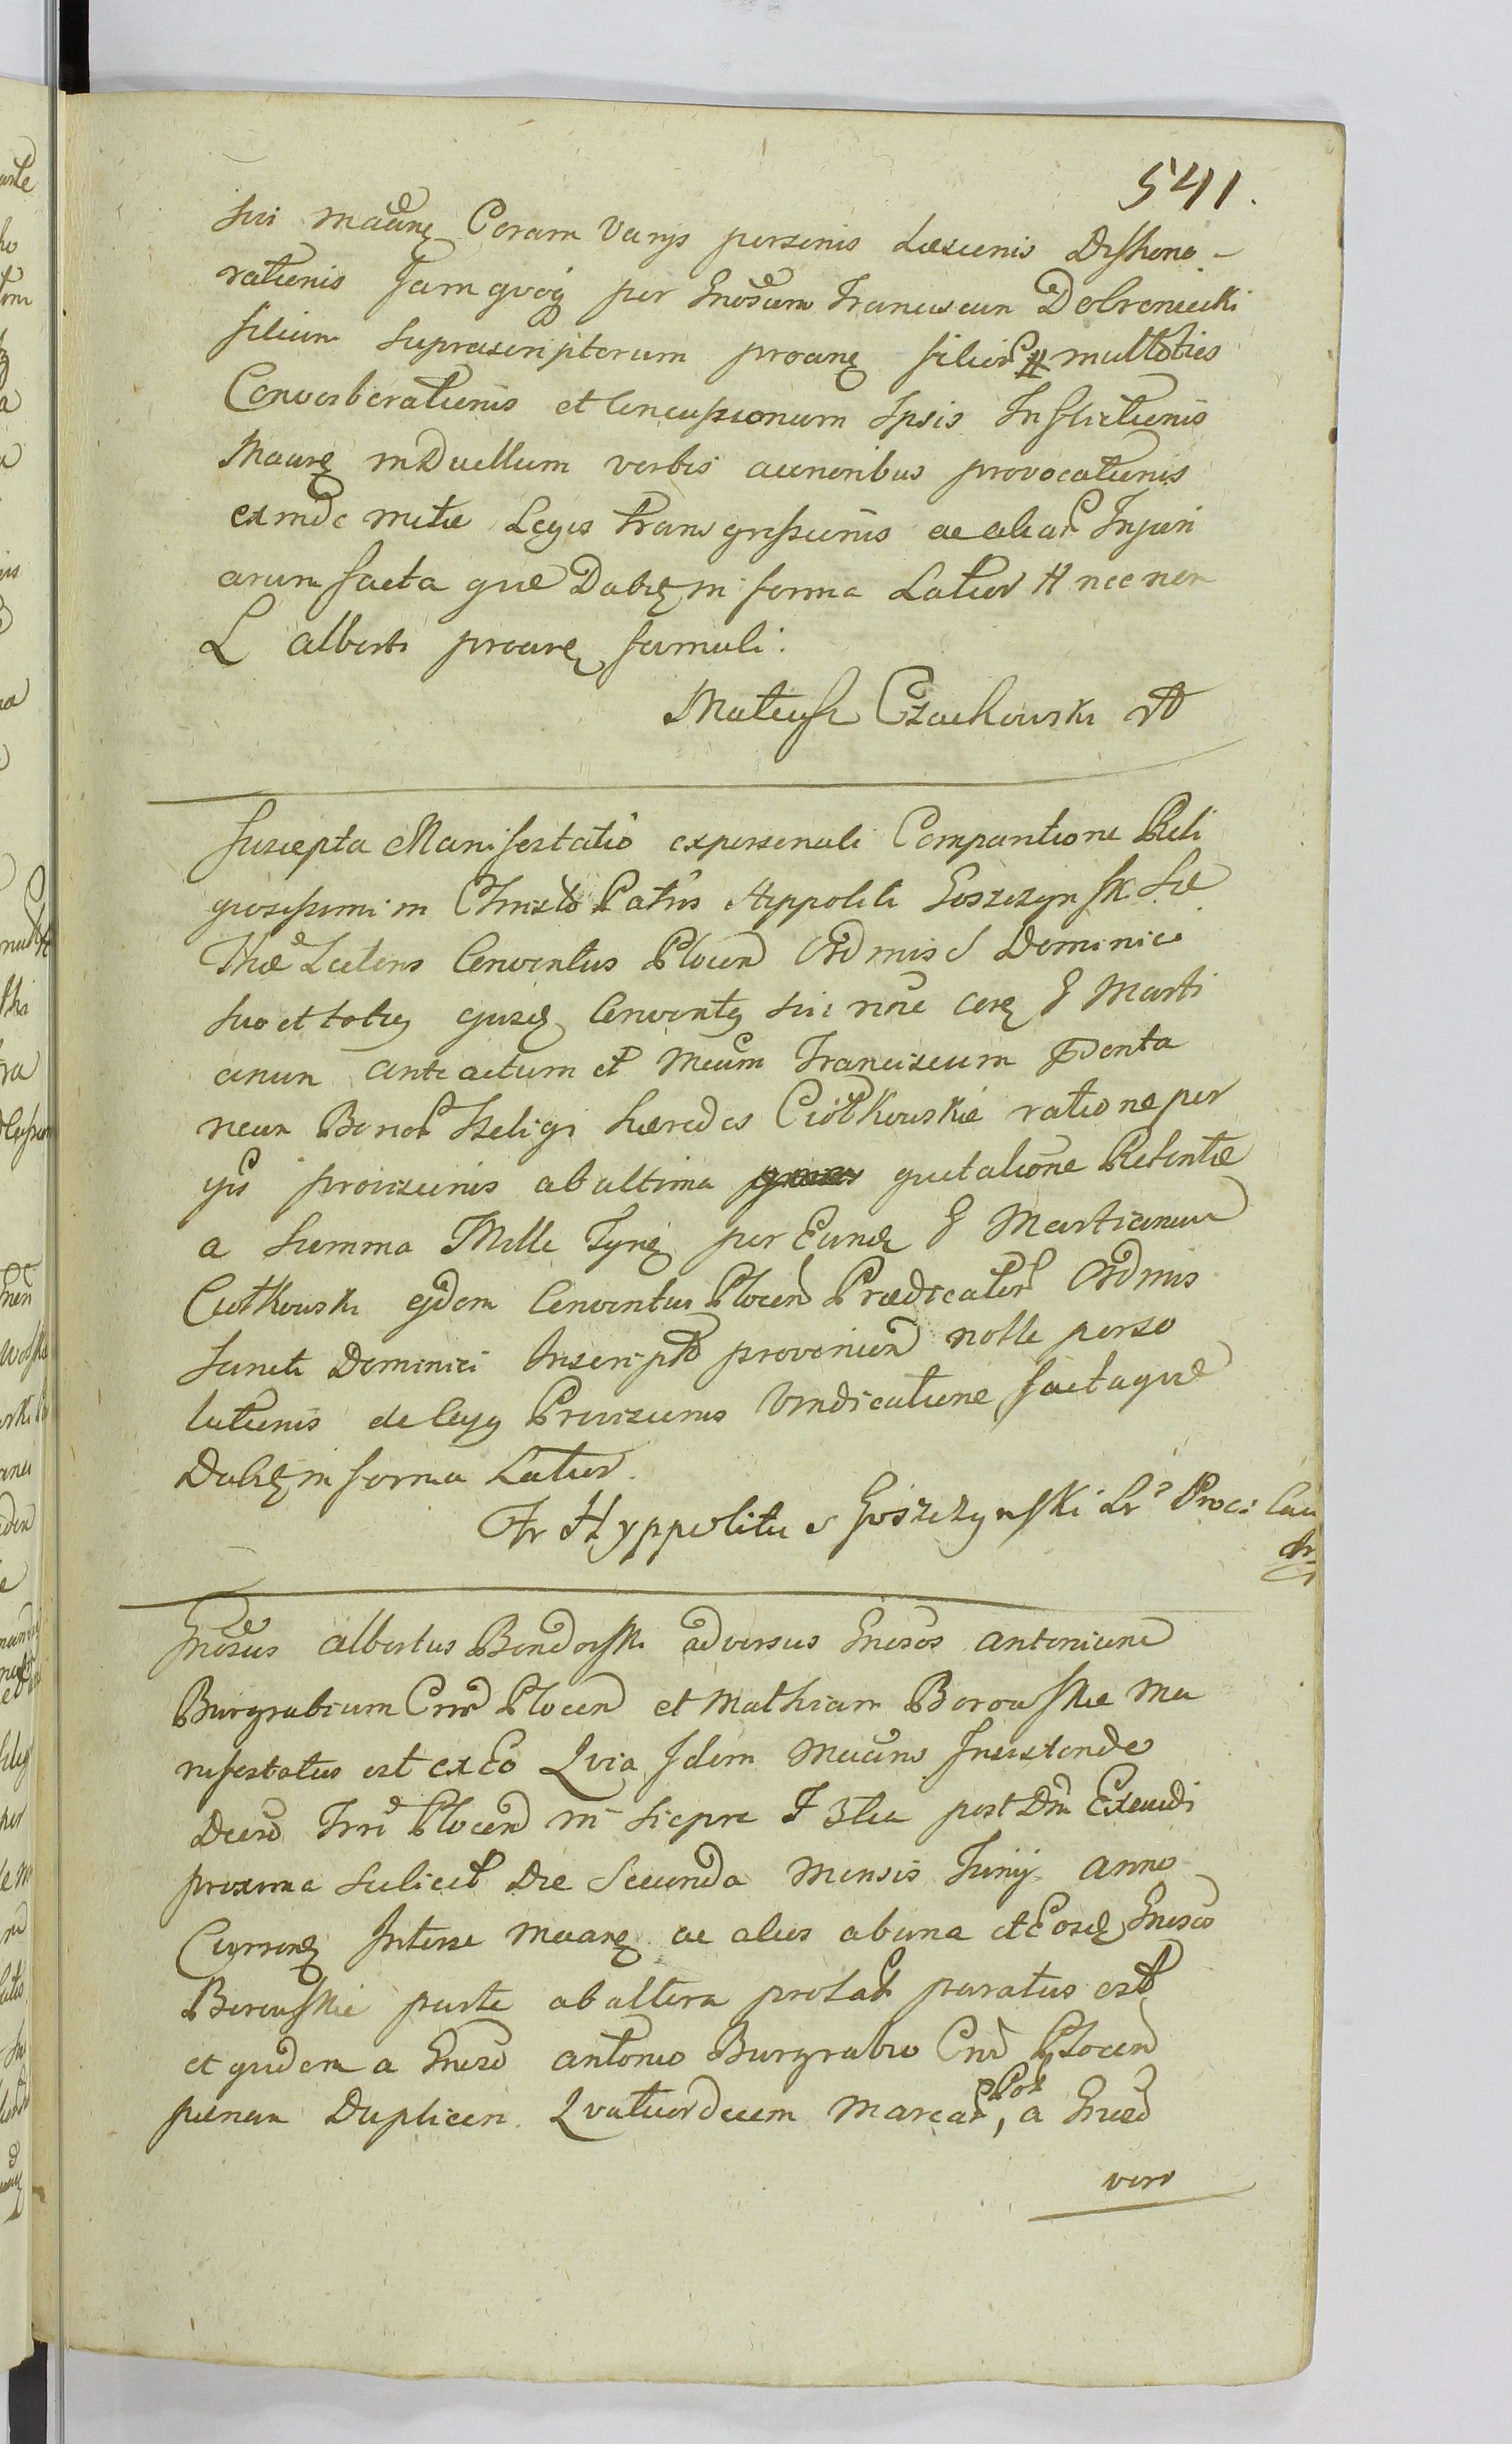 541.
sui Maãnẽ Coram Varijs personis Læsionis Dishono-
rationis Jam qvoq per Gnõsum Franciscum Dobroniecki
filium suprascriptorum proanẽ filior H multoties
Converberationis et Concussionum Ipsis Inflictionis
Maarẽ in Duellum verbis acrioribus provocationis
exinde mitæ Legis transgressionis ac aliar Injuri
arum facta que Dabit in forma Latior H nec non
L Alberti proarẽ famuli.
Mateusz Czachowski
Suscepta Manifestatio ex personali Comparitione Reli
giosissimi in Christo Patris Hyppoliti Goszczynsk Sæ
Thæ Lectoris Conventus Plocen Ordinis S Dominici
suo et totius ejusd Conventus sui noïe cora G Marti
anum ante actum et Mcum Franciscum
neum Bonor Szeligi hæredes Ciółkowskie ratione per
ijs provisionis ab ultima quetatione Retentæ
a Summa Mille Tynf per Eund G Martianum
Ciolkowski ejdem Conventui Plocen Prædicator Ordinis
Sancti Dominici Inscripto provenien nolle perso
lutionis de Cujus Provisionis Vindicatione facta que
Dabit in forma Latior.
Fr Hyppolitus Goszczynski Lr Proc: Cau
Gnõsus Albertus Bendorski adversus Gnosos Antonium
Burgrabium Cnr Plocen et Mathiam Borowskie Ma
nifestatus est ex Eo Qvia Idem Mcans Insistendo
Decro Trri Plocen in Sierpc F 3tia post Dm Exaudi
proxima scilicet Die Secunda Mensis Junij Anno
Curren Inter se Maarẽ ac alios ab una et Eosd Gnosos
Borowskie parte ab altera prolat paratus est
et quidem a Gnoso Antonio Burgrabio Cnr Plocen
pænam Duplicem Qvatuordecem Marcar Pol, a Gnoso
vero